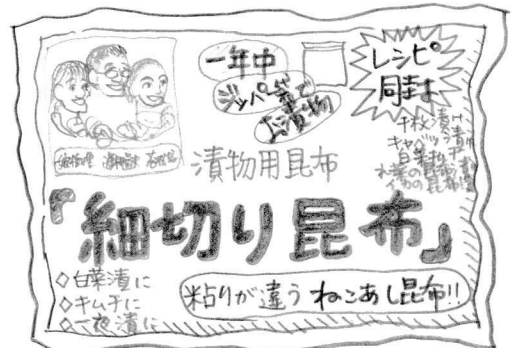 一年中
ジッパー袋で
お漬物
レシピ
同封
千枚漬け
漬物用昆布
「細切り昆布」
◇白菜漬に
◇キムチに
◇一夜漬に
粘りが違う ねこあし昆布!!